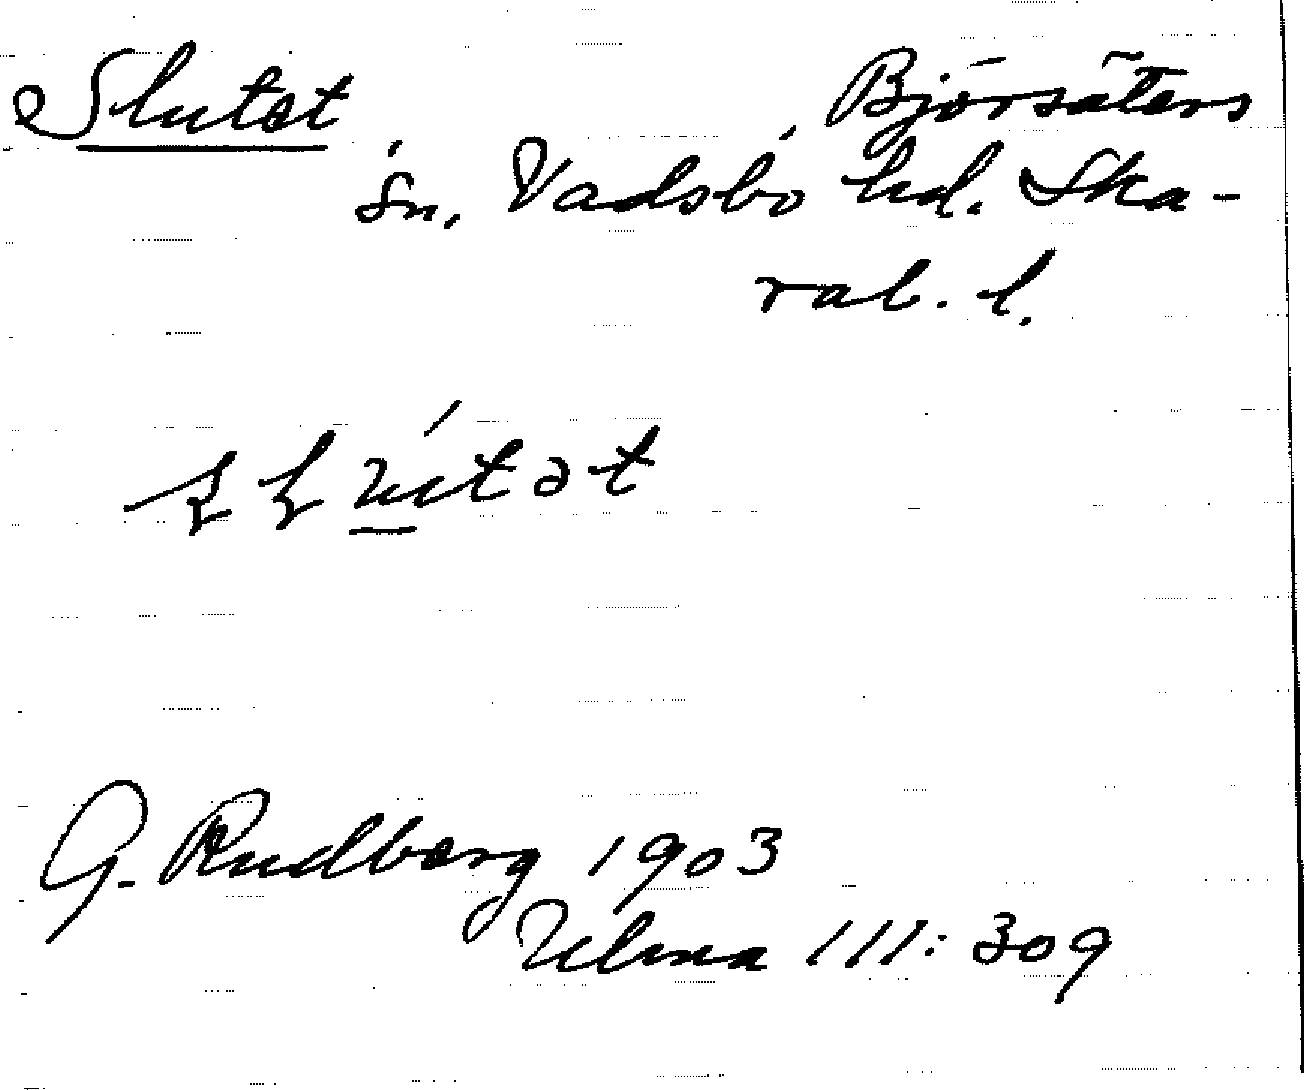 Slutet Björsäters
sn, Vadsbo hd. Ska-
rab. l.
G. Rudberg 1903
Uelma 111:309